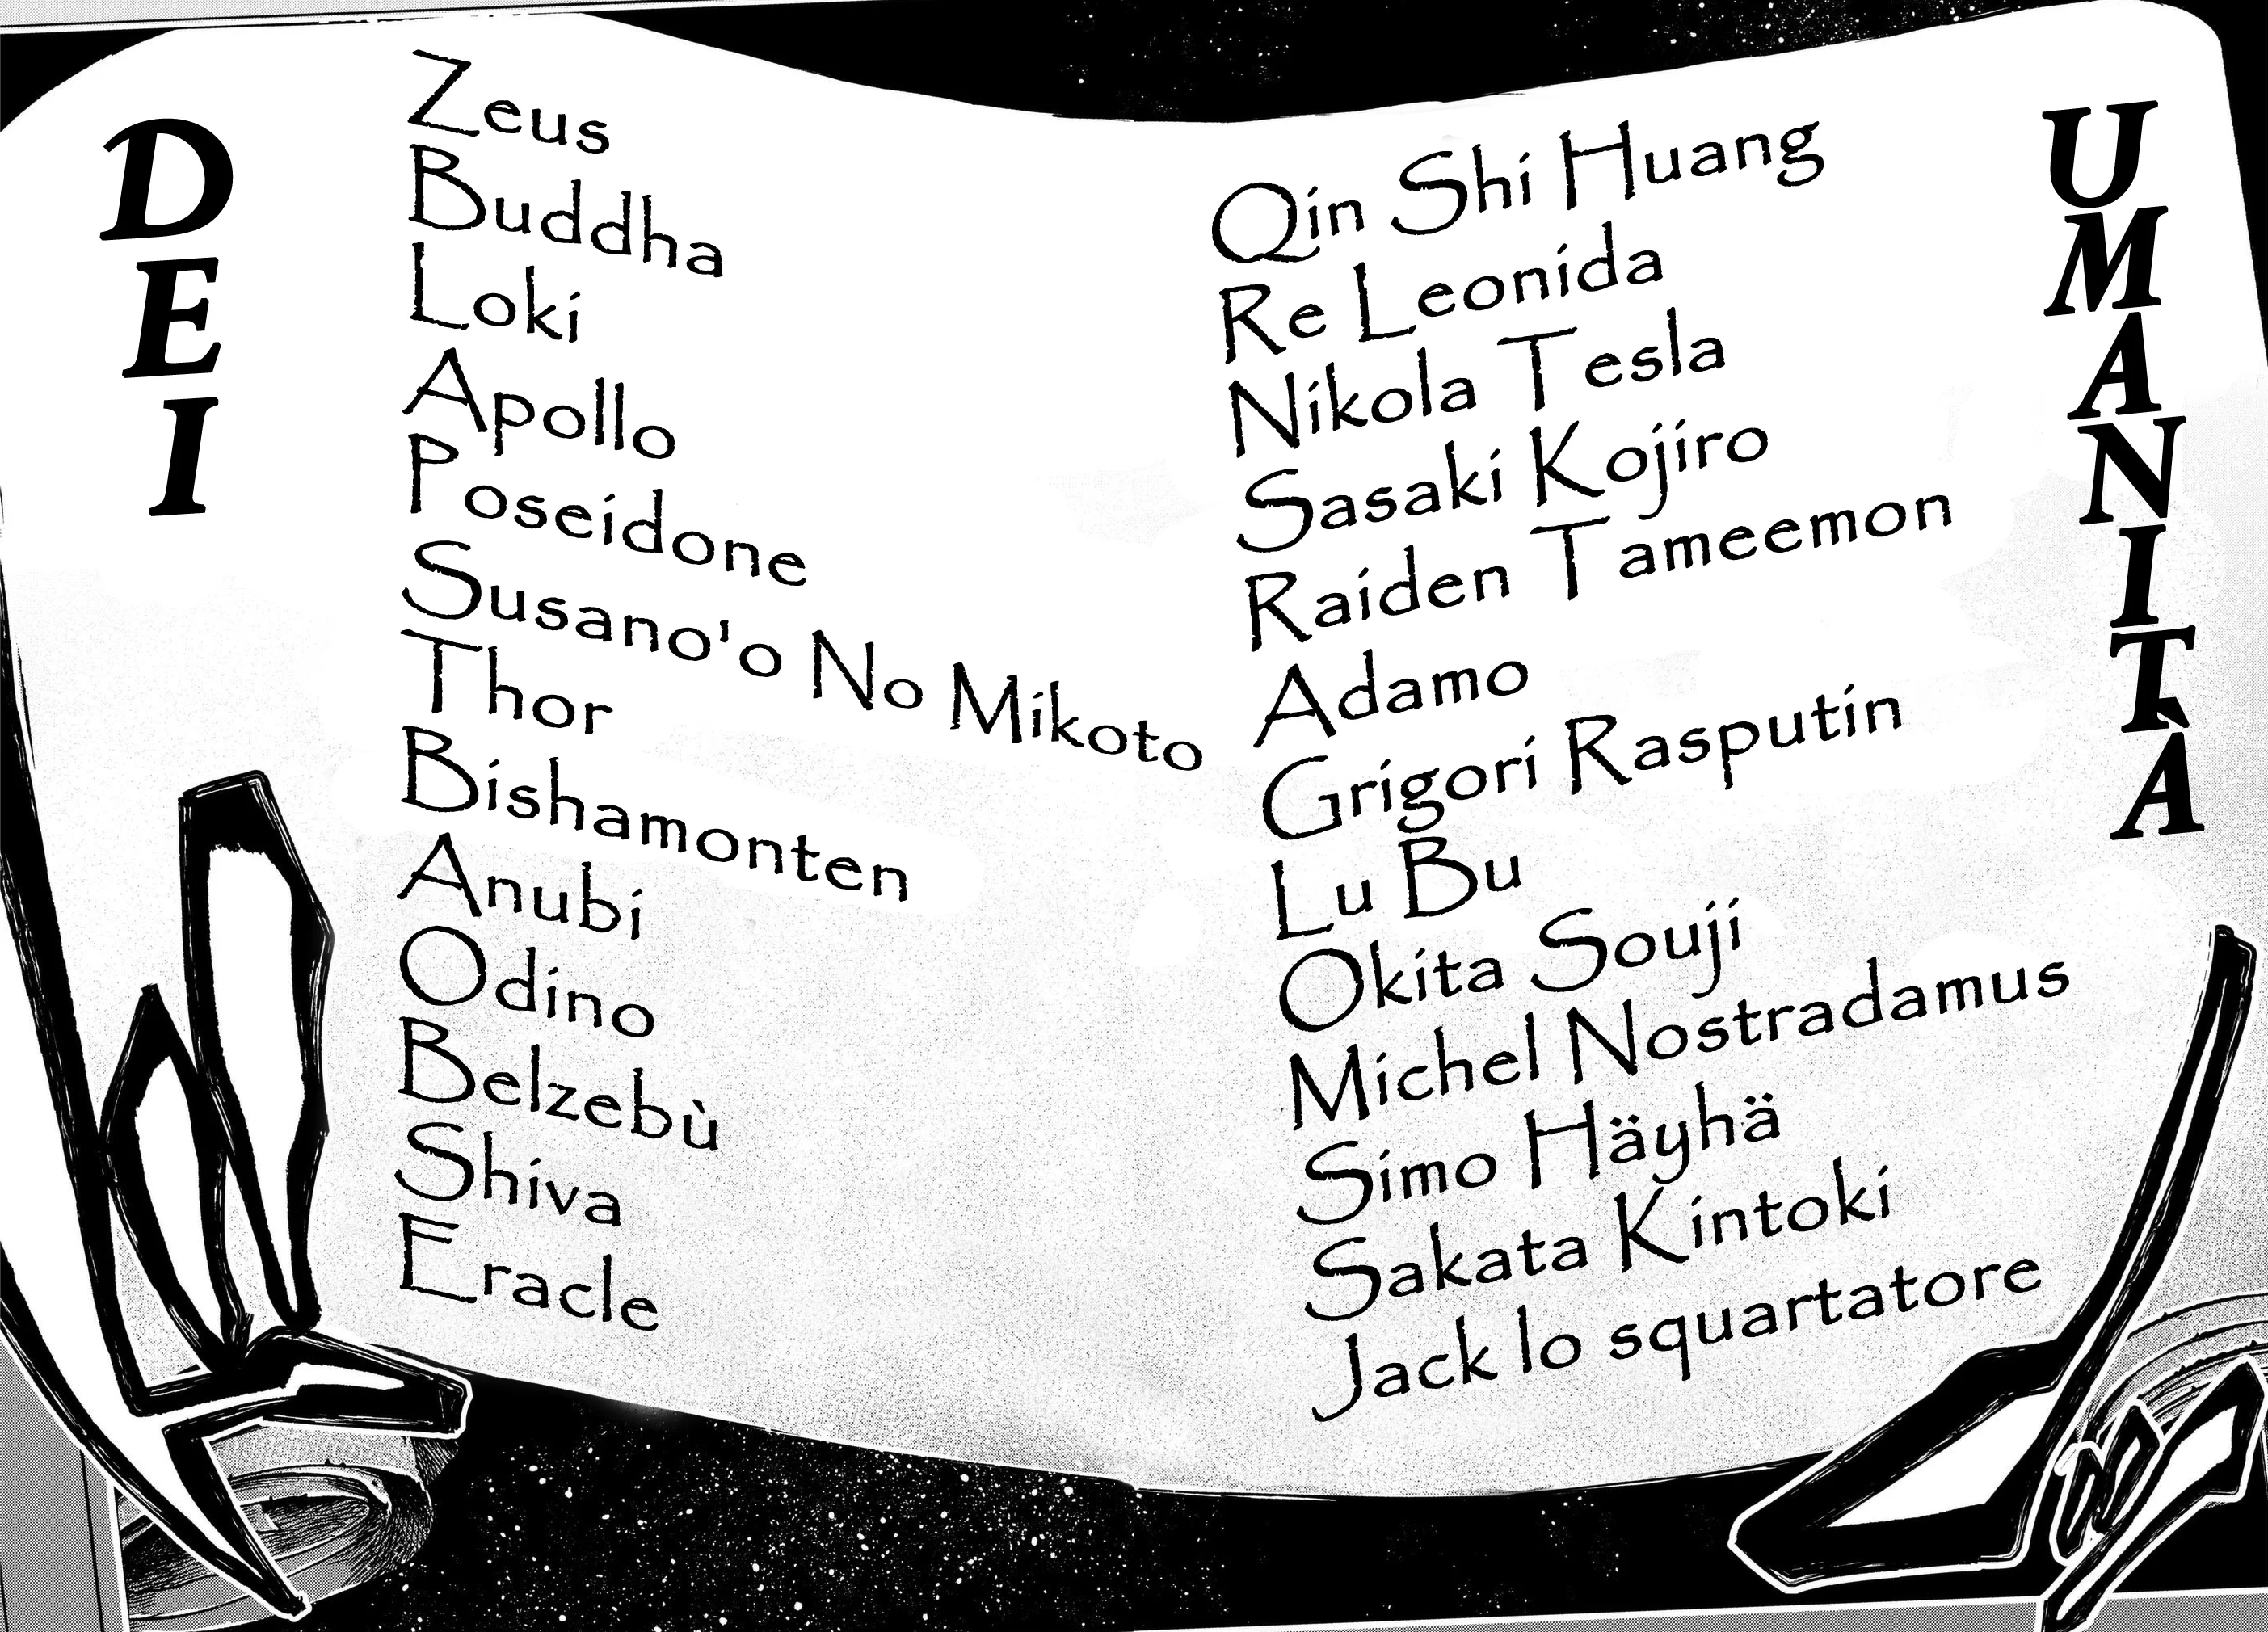 DEI
Zeus
Buddha
Loki
Apollo
Poseidone
Susano'o No Mikoto
Thor
Bishamonten
Anubi
Odino
Belzebù
Shiva
Eracle
UMANITÀ
Qin Shi Huang
Re Leonida
Nikola Tesla
Sasaki Kojiro
Raiden Tameemon
Adamo
Grigori Rasputin
Lu Bu
Okita Souji
Michel Nostradamus
Simo Häyhä
Sakata Kintoki
Jack lo squartatore